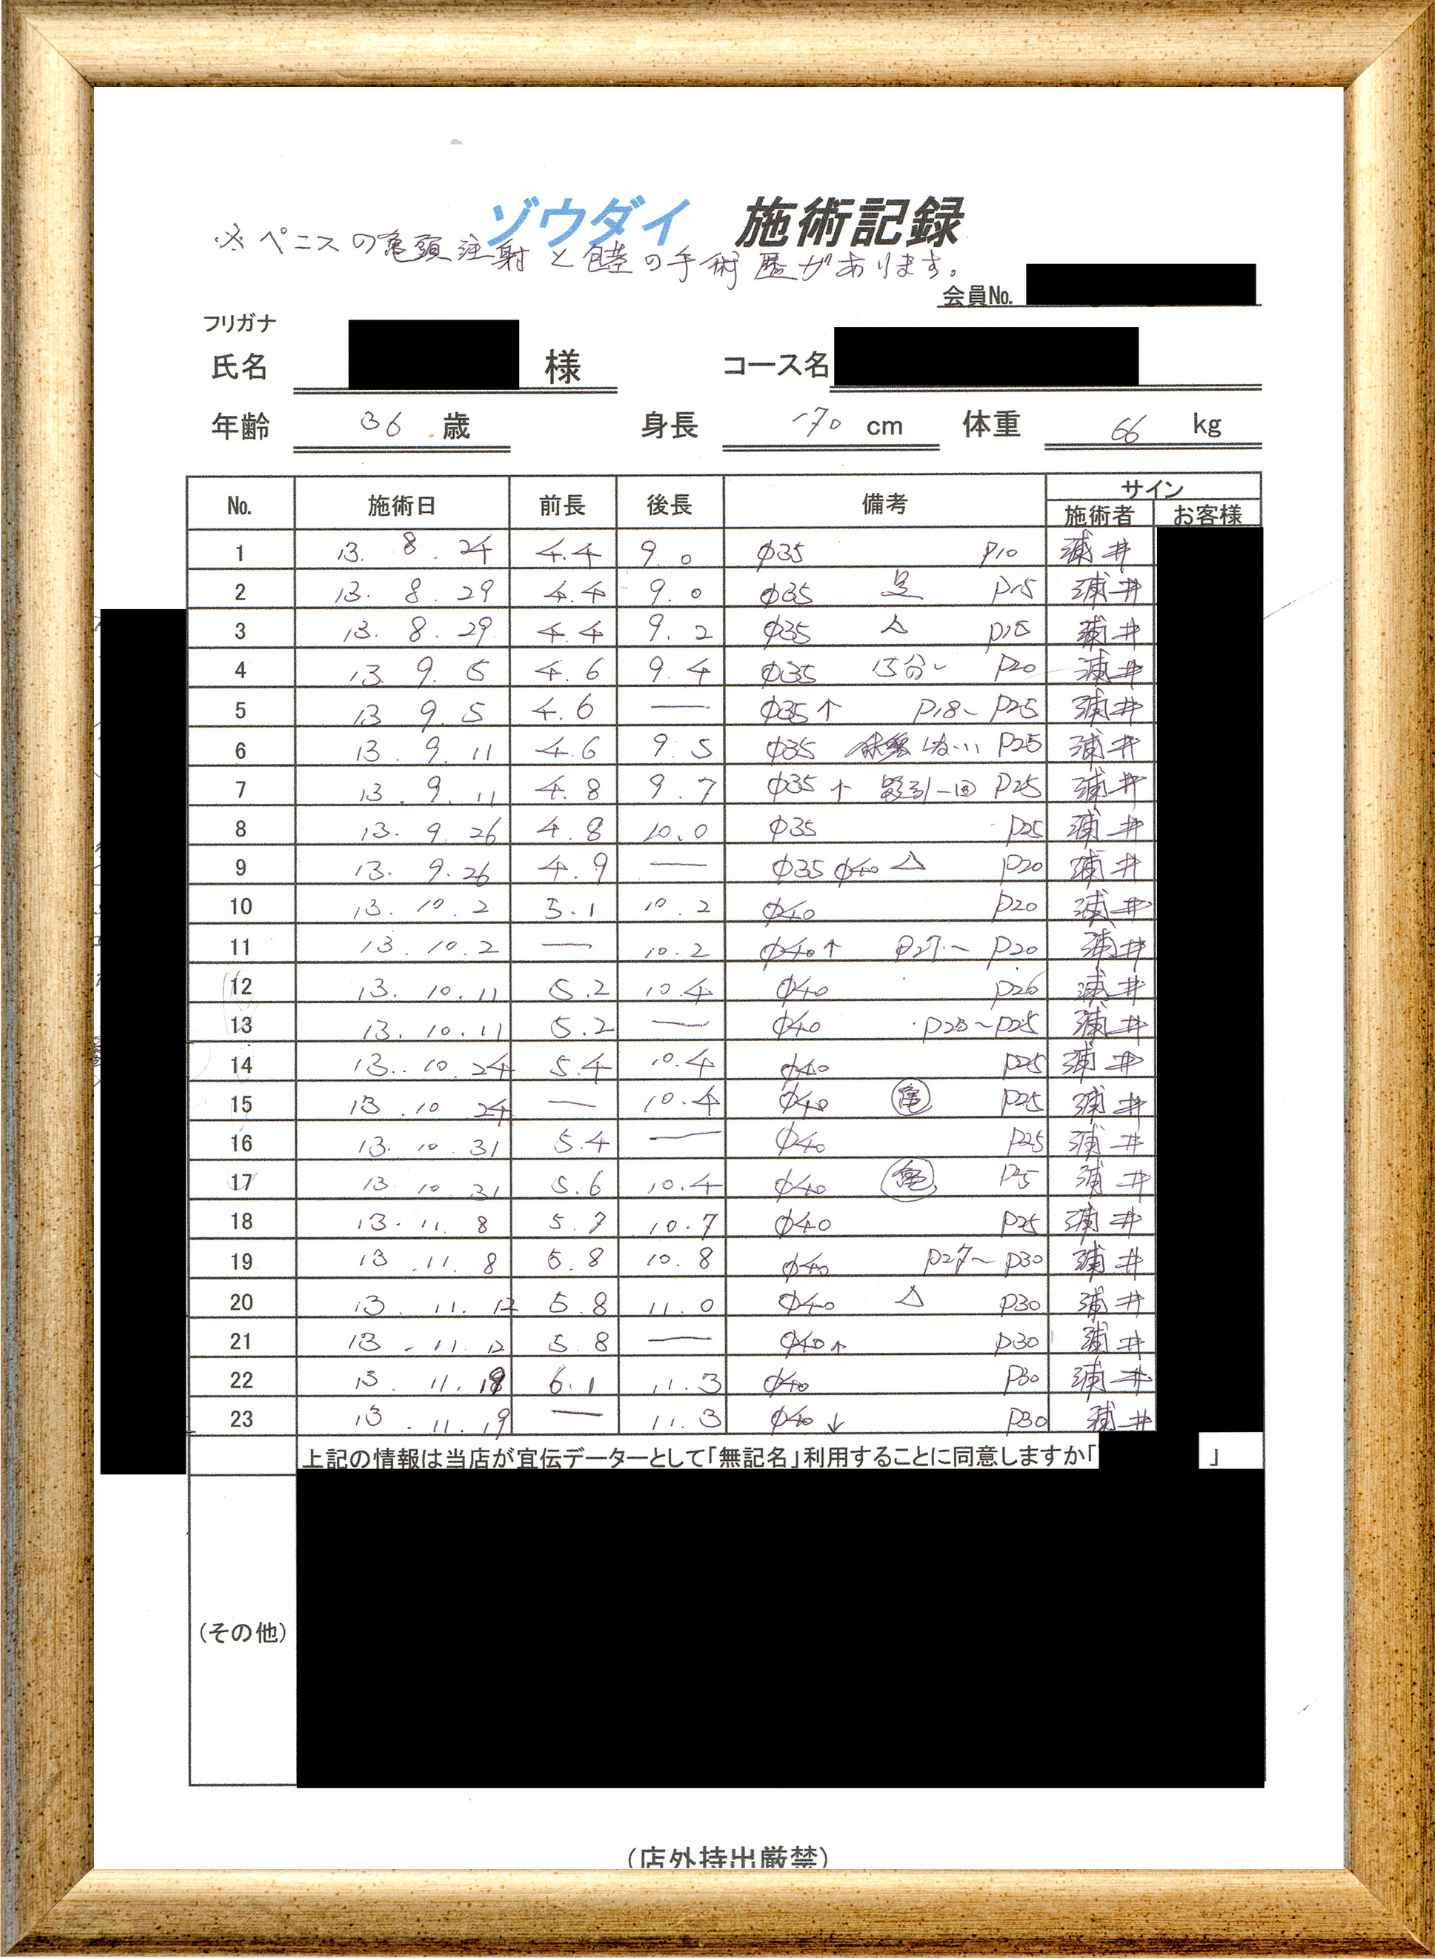 ゾウダイ 施術記録
※ペニスの亀頭注射と包茎の手術歴があります。
会員No.
フリガナ
氏名 様 コース名
年齢 36 歳 身長 170 cm 体重 66 kg
No. 施術日 前長 後長 備考 サイン
施術者 お客様
1 13. 8. 24 4.4 9.0 φ35 P10 浦井
2 13. 8. 29 4.4 9.0 φ35 P15 浦井
3 13. 8. 29 4.4 9.2 φ35 △ P15 浦井
4 13. 9. 5 4.6 9.4 φ35 15分~ P20 浦井
5 13 9. 5 4.6 — φ35↑ P18~ P25 浦井
6 13. 9. 11 4.6 9.5 φ35 P25 浦井
7 13. 9. 11 4.8 9.7 φ35 ↑ 一回 P25 浦井
8 13. 9. 26 4.8 10.0 φ35 P25 浦井
9 13. 9. 26 4.9 — φ35 φ40 △ P20 浦井
10 13. 10. 2 5.1 10.2 φ40 P20 浦井
11 13 10. 2 — 10.2 φ40↑ P27~ P20 浦井
12 13. 10. 11 5.2 10.4 φ40 P20 浦井
13 13. 10. 11 5.2 — φ40 P20~P25 浦井
14 13. 10. 24 5.4 10.4 φ40 P25 浦井
15 13. 10 24 — 10.4 φ40 亀 P25 浦井
16 13. 10. 31 5.4 — φ40 P25 浦井
17 13 10 31 5.6 10.4 φ40 亀 P25 浦井
18 13. 11. 8 5.7 10.7 φ40 P25 浦井
19 13 . 11. 8 5.8 10.8 φ40 P27~ P30 浦井
20 13 . 11. 12 5.8 11.0 φ40 △ P30 浦井
21 13 . 11. 12 5.8 — φ40↑ P30 浦井
22 13. 11. 19 6.1 11.3 φ40 P30 浦井
23 13 . 11. 19 — 11.3 φ40 ↓ P30 浦井
上記の情報は当店が宣伝データーとして「無記名」利用することに同意しますか「 」
(その他)
(店外持出厳禁)